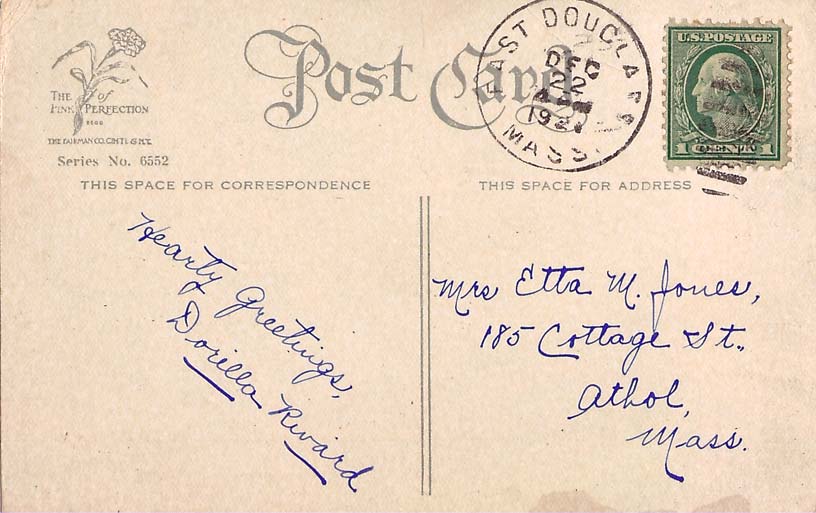 THE of
PINK PERFECTION
THE FAIRMAN CO. CIN'TI. & N.Y.
Series No. 6552
Post Card
EAST DOUGLASS
DEC
22
MASS.
U.S. POSTAGE
1
THIS SPACE FOR CORRESPONDENCE
THIS SPACE FOR ADDRESS
Hearty Greetings,
Dorilla Rivard
Mrs Etta M. Jones,
185 Cottage St.,
Athol,
Mass.